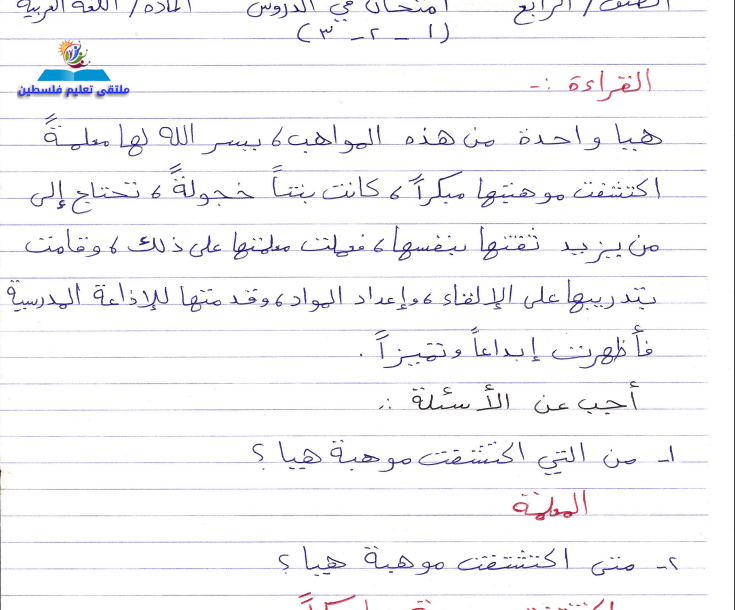 الصف / الرابع امتحان في الدروس المادة / اللغة العربية
(١ - ٢ - ٣)
ملتقى تعليم فلسطين
القراءة :-
هيا واحدة من هذه المواهب، يسر الله لها معلمةً
اكتشفت موهبتها مبكراً، كانت بنتاً خجولةً، تحتاج إلى
من يزيد ثقتها بنفسها، فعملت معلمتها على ذلك، وقامت
بتدريبها على الإلقاء، وإعداد المواد، وقدمتها للإذاعة المدرسية
فأظهرت إبداعاً وتميزاً.
أجب عن الأسئلة :.
١- من التي اكتشفت موهبة هيا؟
المعلمة
٢- متى اكتشفت موهبة هيا؟